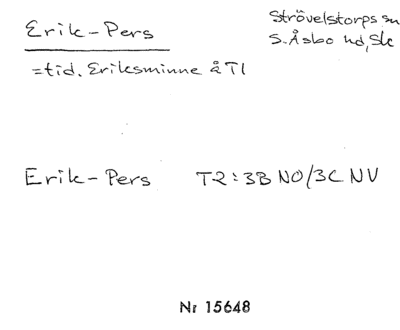 Erik-Pers
Strövelstorps sn
S. Åsbo hd, Sk
= tid. Eriksminne å T1
Erik-Pers T2: 3B NO/3C NV
Nr 15648